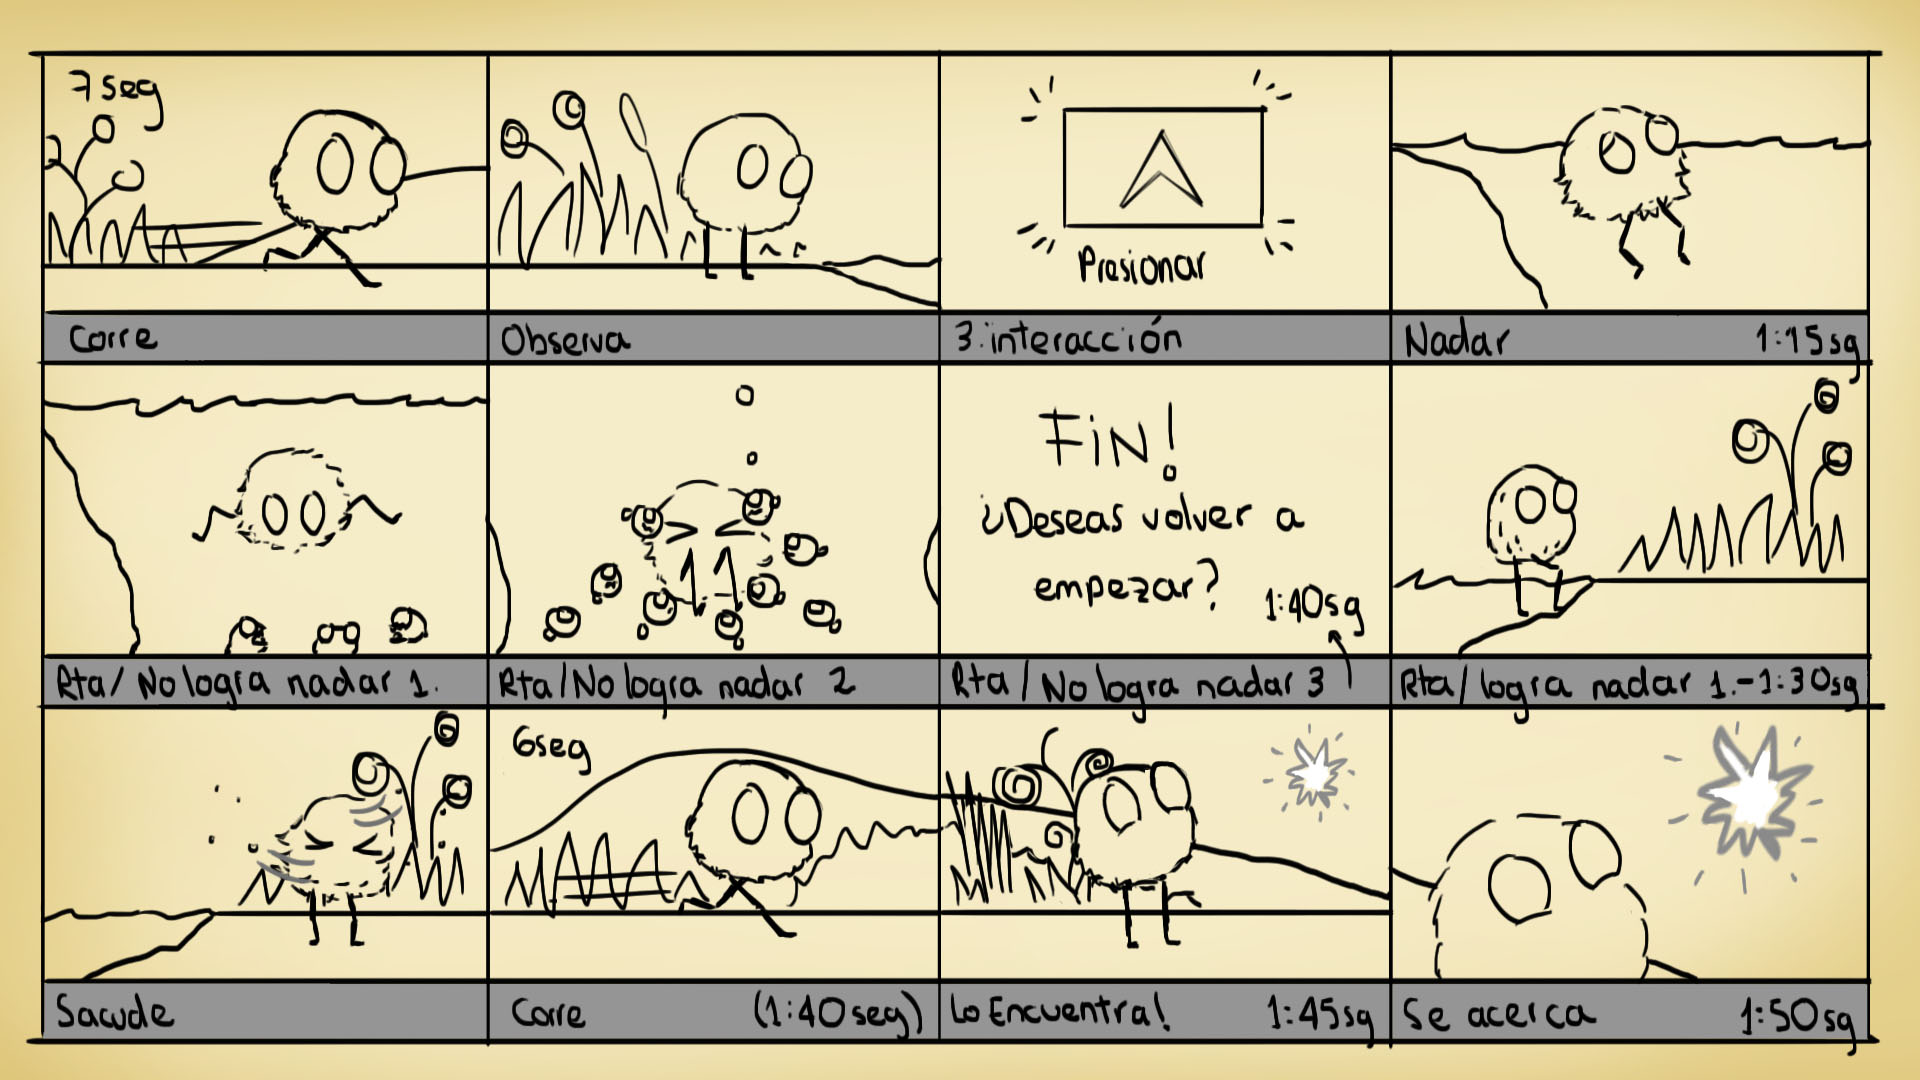 7seg
Corre
Observa
Presionar
3.interacción
Nadar 1:15sg
Rta/ No logra nadar 1.
Rta/No logra nadar 2
FiN!
¿Deseas volver a
empezar?
1:40sg
Rta/ No logra nadar 3
Rta/ logra nadar 1.-1:30sg
Sacude
6seg
Corre (1:40seg)
Lo Encuentra! 1:45sg
Se acerca 1:50sg